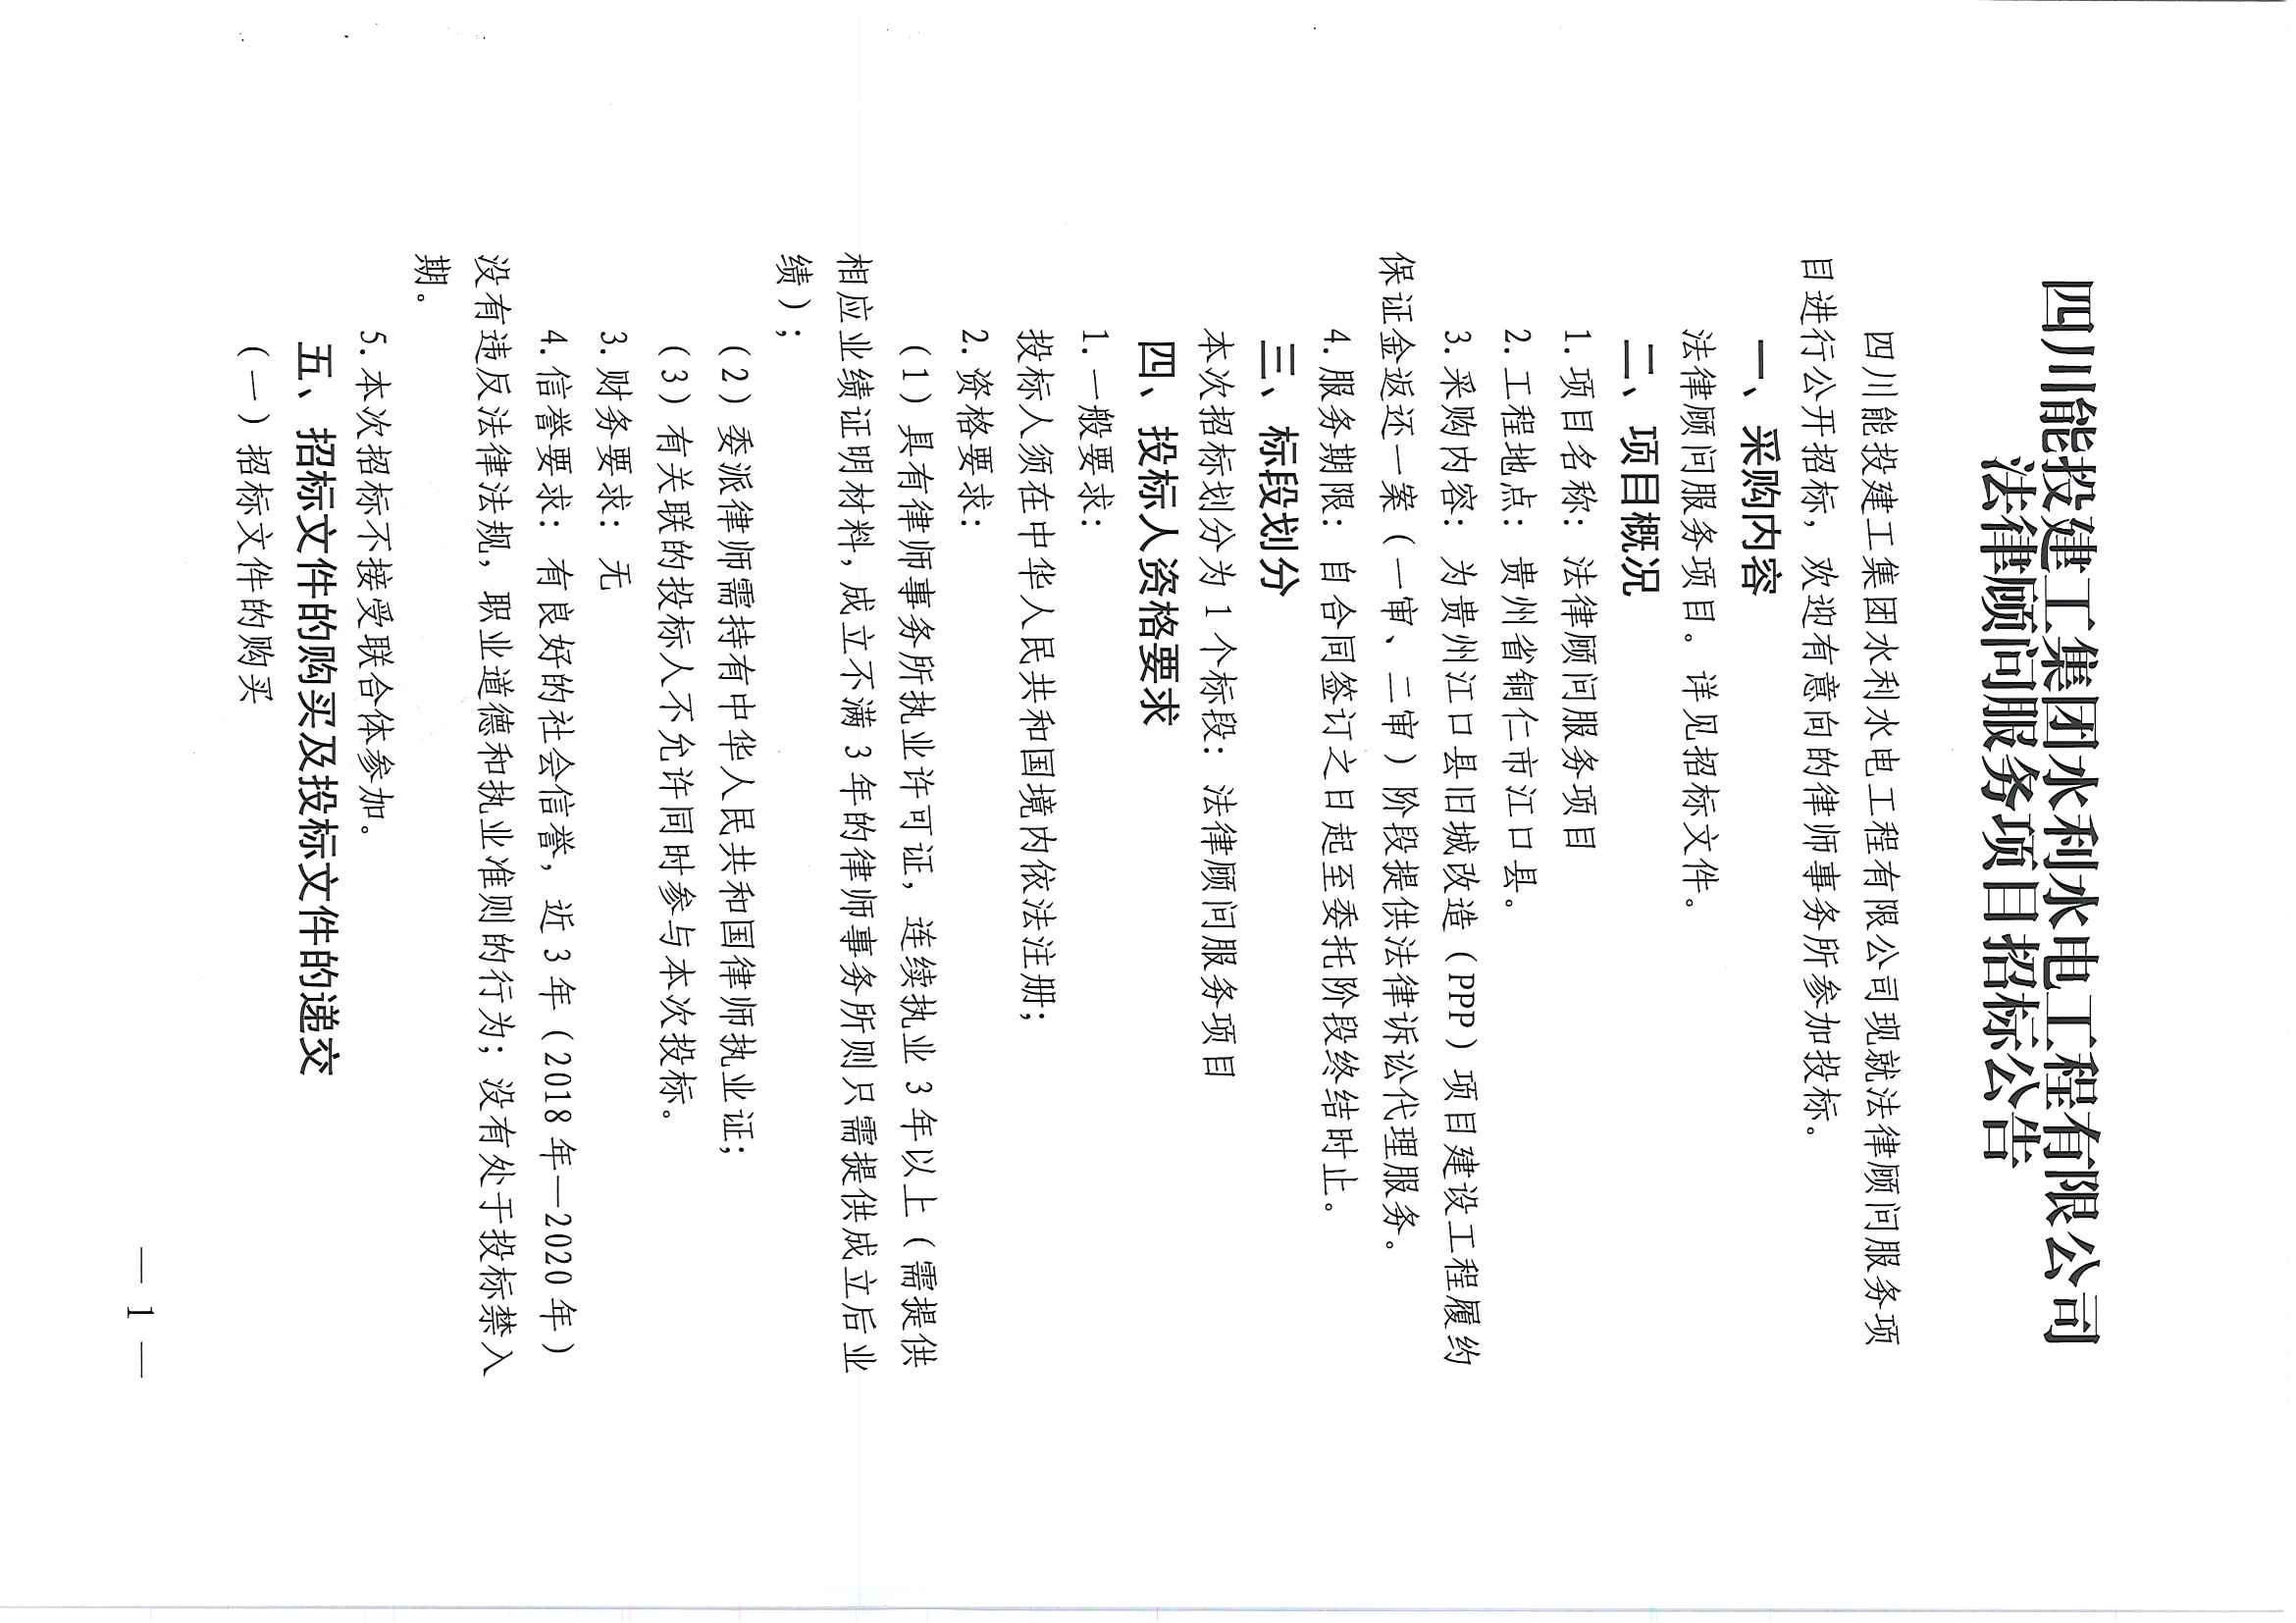 四川能投建工集团水利水电工程有限公司
法律顾问服务项目招标公告
四川能投建工集团水利水电工程有限公司现就法律顾问服务项
目进行公开招标，欢迎有意向的律师事务所参加投标。
一、采购内容
法律顾问服务项目。详见招标文件。
二、项目概况
1.项目名称：法律顾问服务项目
2.工程地点：贵州省铜仁市江口县。
3.采购内容：为贵州江口县旧城改造（PPP）项目建设工程履约
保证金返还一案（一审、二审）阶段提供法律诉讼代理服务。
4.服务期限：自合同签订之日起至委托阶段终结时止。
三、标段划分
本次招标划分为 1 个标段：法律顾问服务项目
四、投标人资格要求
1.一般要求：
投标人须在中华人民共和国境内依法注册；
2.资格要求：
（1）具有律师事务所执业许可证，连续执业 3 年以上（需提供
相应业绩证明材料，成立不满 3 年的律师事务所则只需提供成立后业
绩）；
（2）委派律师需持有中华人民共和国律师执业证；
（3）有关联的投标人不允许同时参与本次投标。
3.财务要求：无
4.信誉要求：有良好的社会信誉，近 3 年（2018 年—2020 年）
没有违反法律法规，职业道德和执业准则的行为；没有处于投标禁入
期。
5.本次招标不接受联合体参加。
五、招标文件的购买及投标文件的递交
（一）招标文件的购买
— 1 —